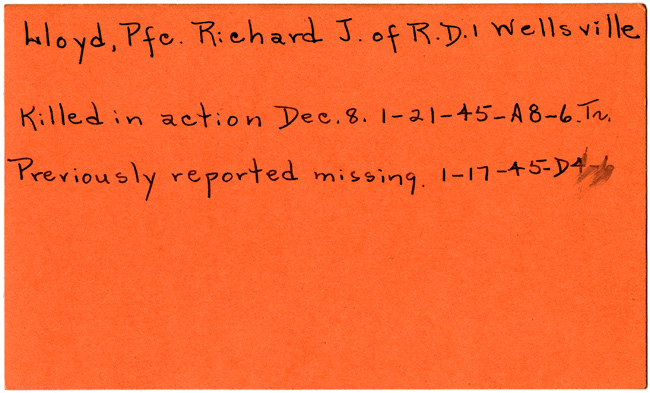 Lloyd, Pfc. Richard J. of R.D.1 Wellsville
Killed in action Dec. 8. 1-21-45-A8-6. Tr.
Previously reported missing. 1-17-45-D4